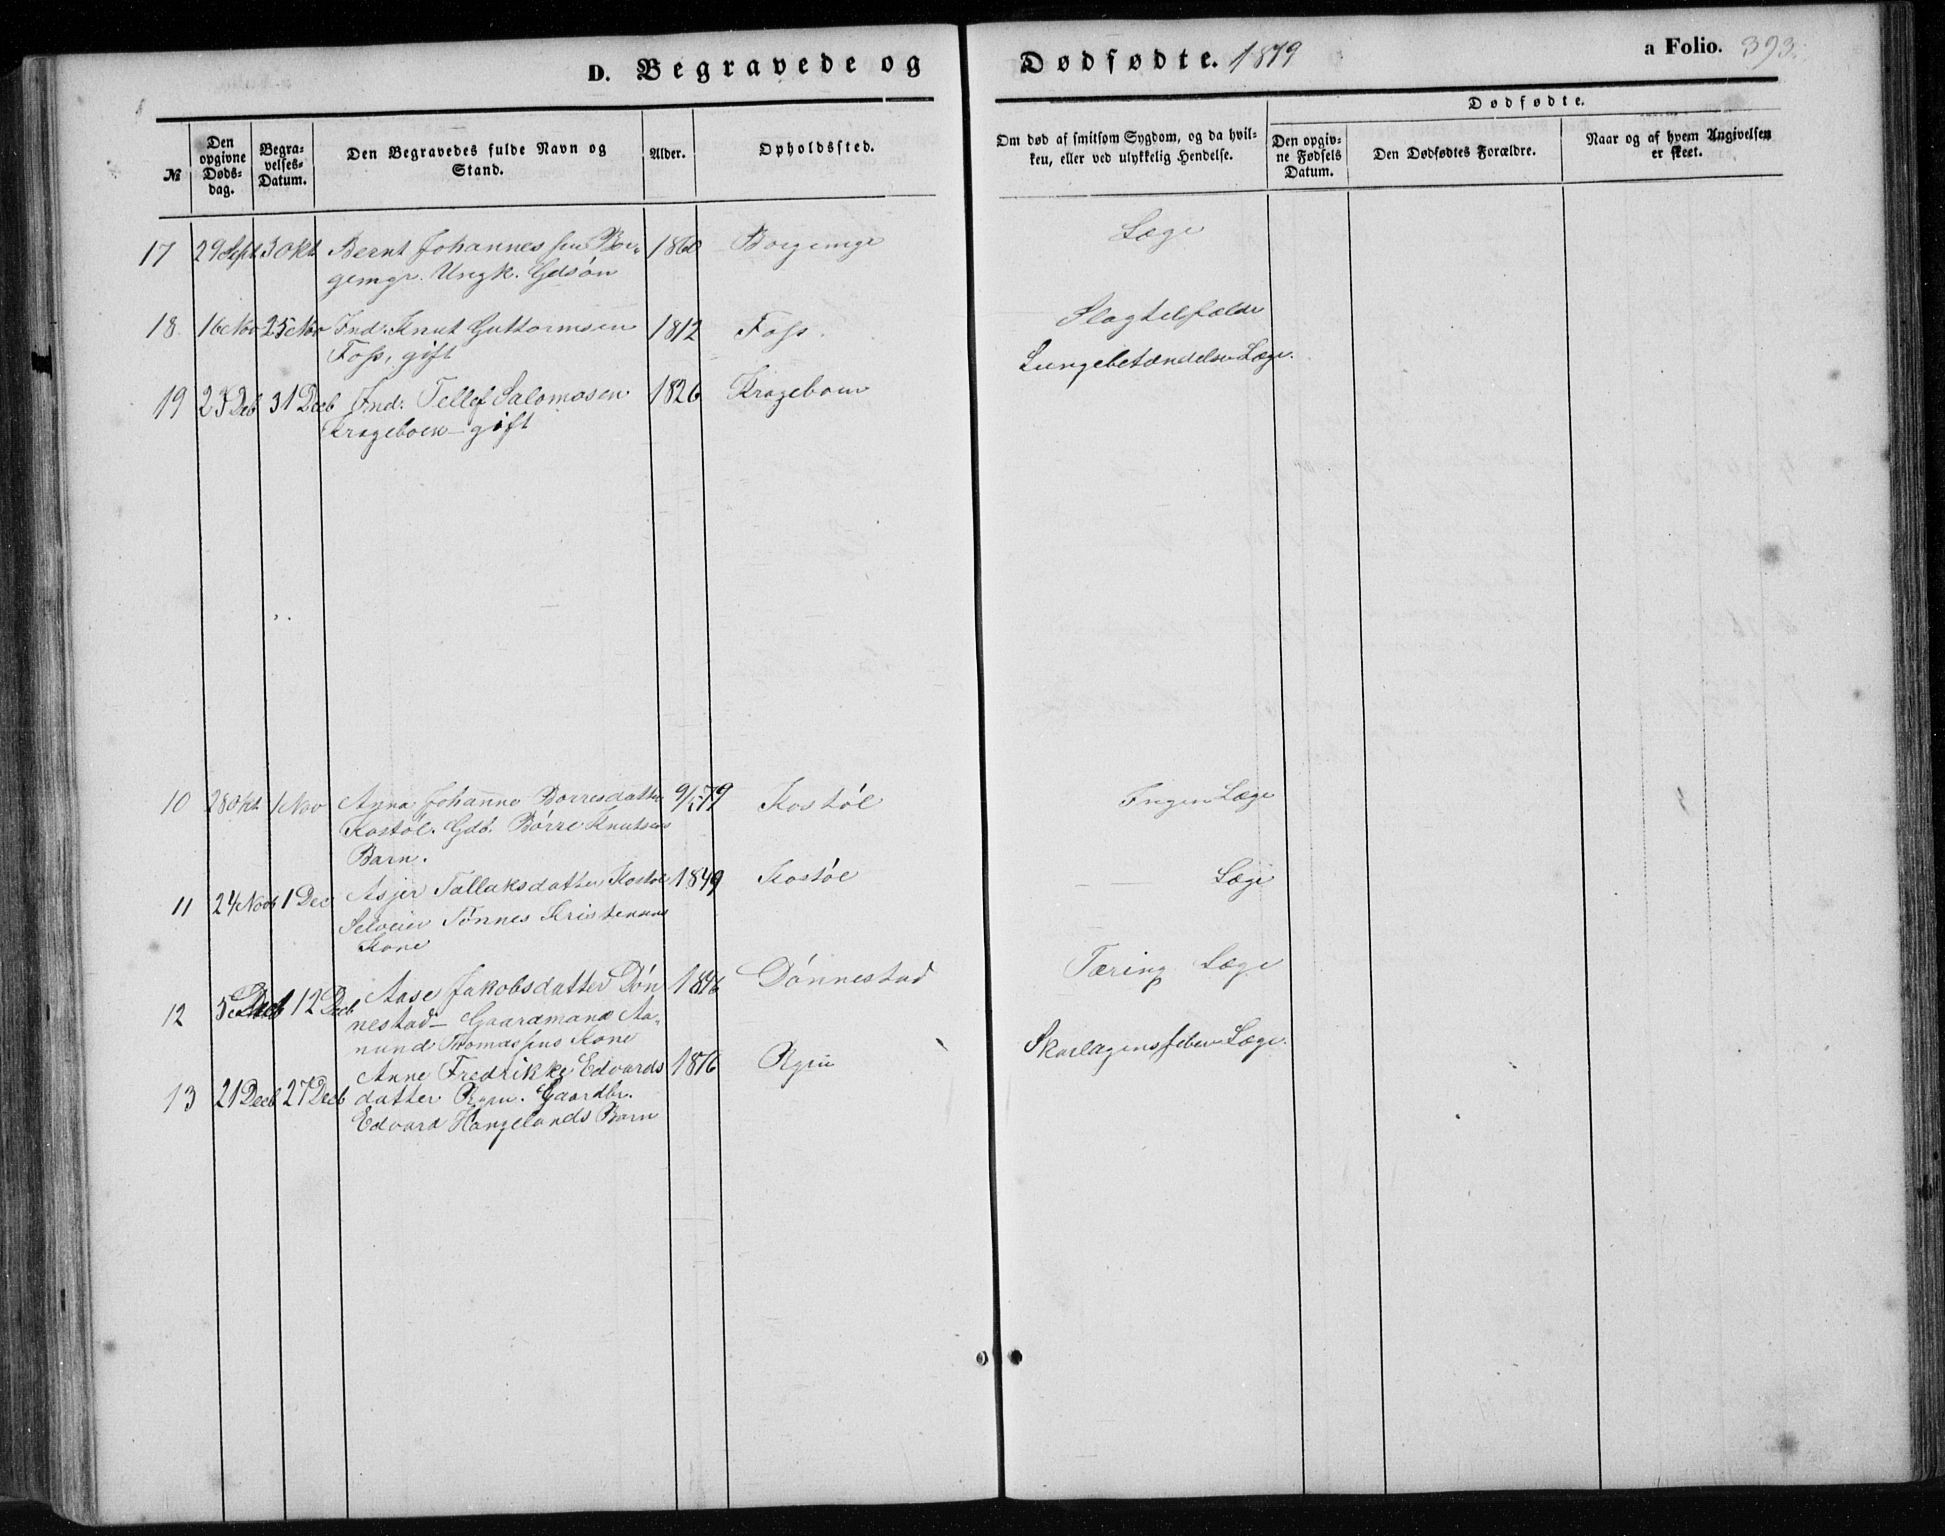 D. Begravede og Dødfødte. 1879
a Folio. 393.
№
Den opgivne Døds-dag.
Begra-velses-Datum.
Den Begravedes fulde Navn og Stand.
Alder.
Opholdssted.
Om død af smitsom Sygdom, og da hvil-
ken, eller ved ulykkelig Hendelse.
Dødfødte.
Den opgiv-ne Fødsels Datum.
Den Dødfødtes Forældre.
Naar og af hvem Angivelsen er skeet.
17 29 Sept 3 Okt Bernt Johannes 1860 Læge
Ungk. Gdsøn
18 16 Nov 25 Nov Ind. Knut Guttormsen 1812 Foss.
Foss, gift
19 23 Deb 31 Decb Ind. Tellef Salomosen 1826 Krageboen Lungebetændelse Læge.
Krageboen – gift
10 28 Okt 1 Nov Anna Johanne Borresdatter 79 Kostøl Ingen Læge
Kostøl. Gdb. Børre Knutsens
Barn.
11 24 Novb 1 Dec Asjer Tallaksdatter Kostøl 1849 Kostøl – Læge
Selveier Tønnes Kristensens
Kone
12 5 Decb 12 Decb Aase Jakobsdatter Dön 1846 Dönnestad Tæring Læge
nestad – Gaardmand Aa-
nund Kone
13 21 Decb 27 Decb Anne Fredrikke Edvards 1876 Skarlagensfeber Læge.
datter. Gaardbr.
Edvard Hangelands Barn